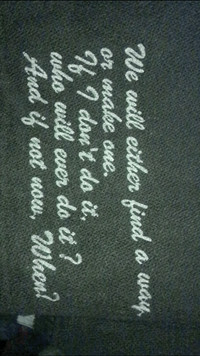 We will either find a way,
or make one.
If I don't do it,
who will ever do it?
And if not now, When?